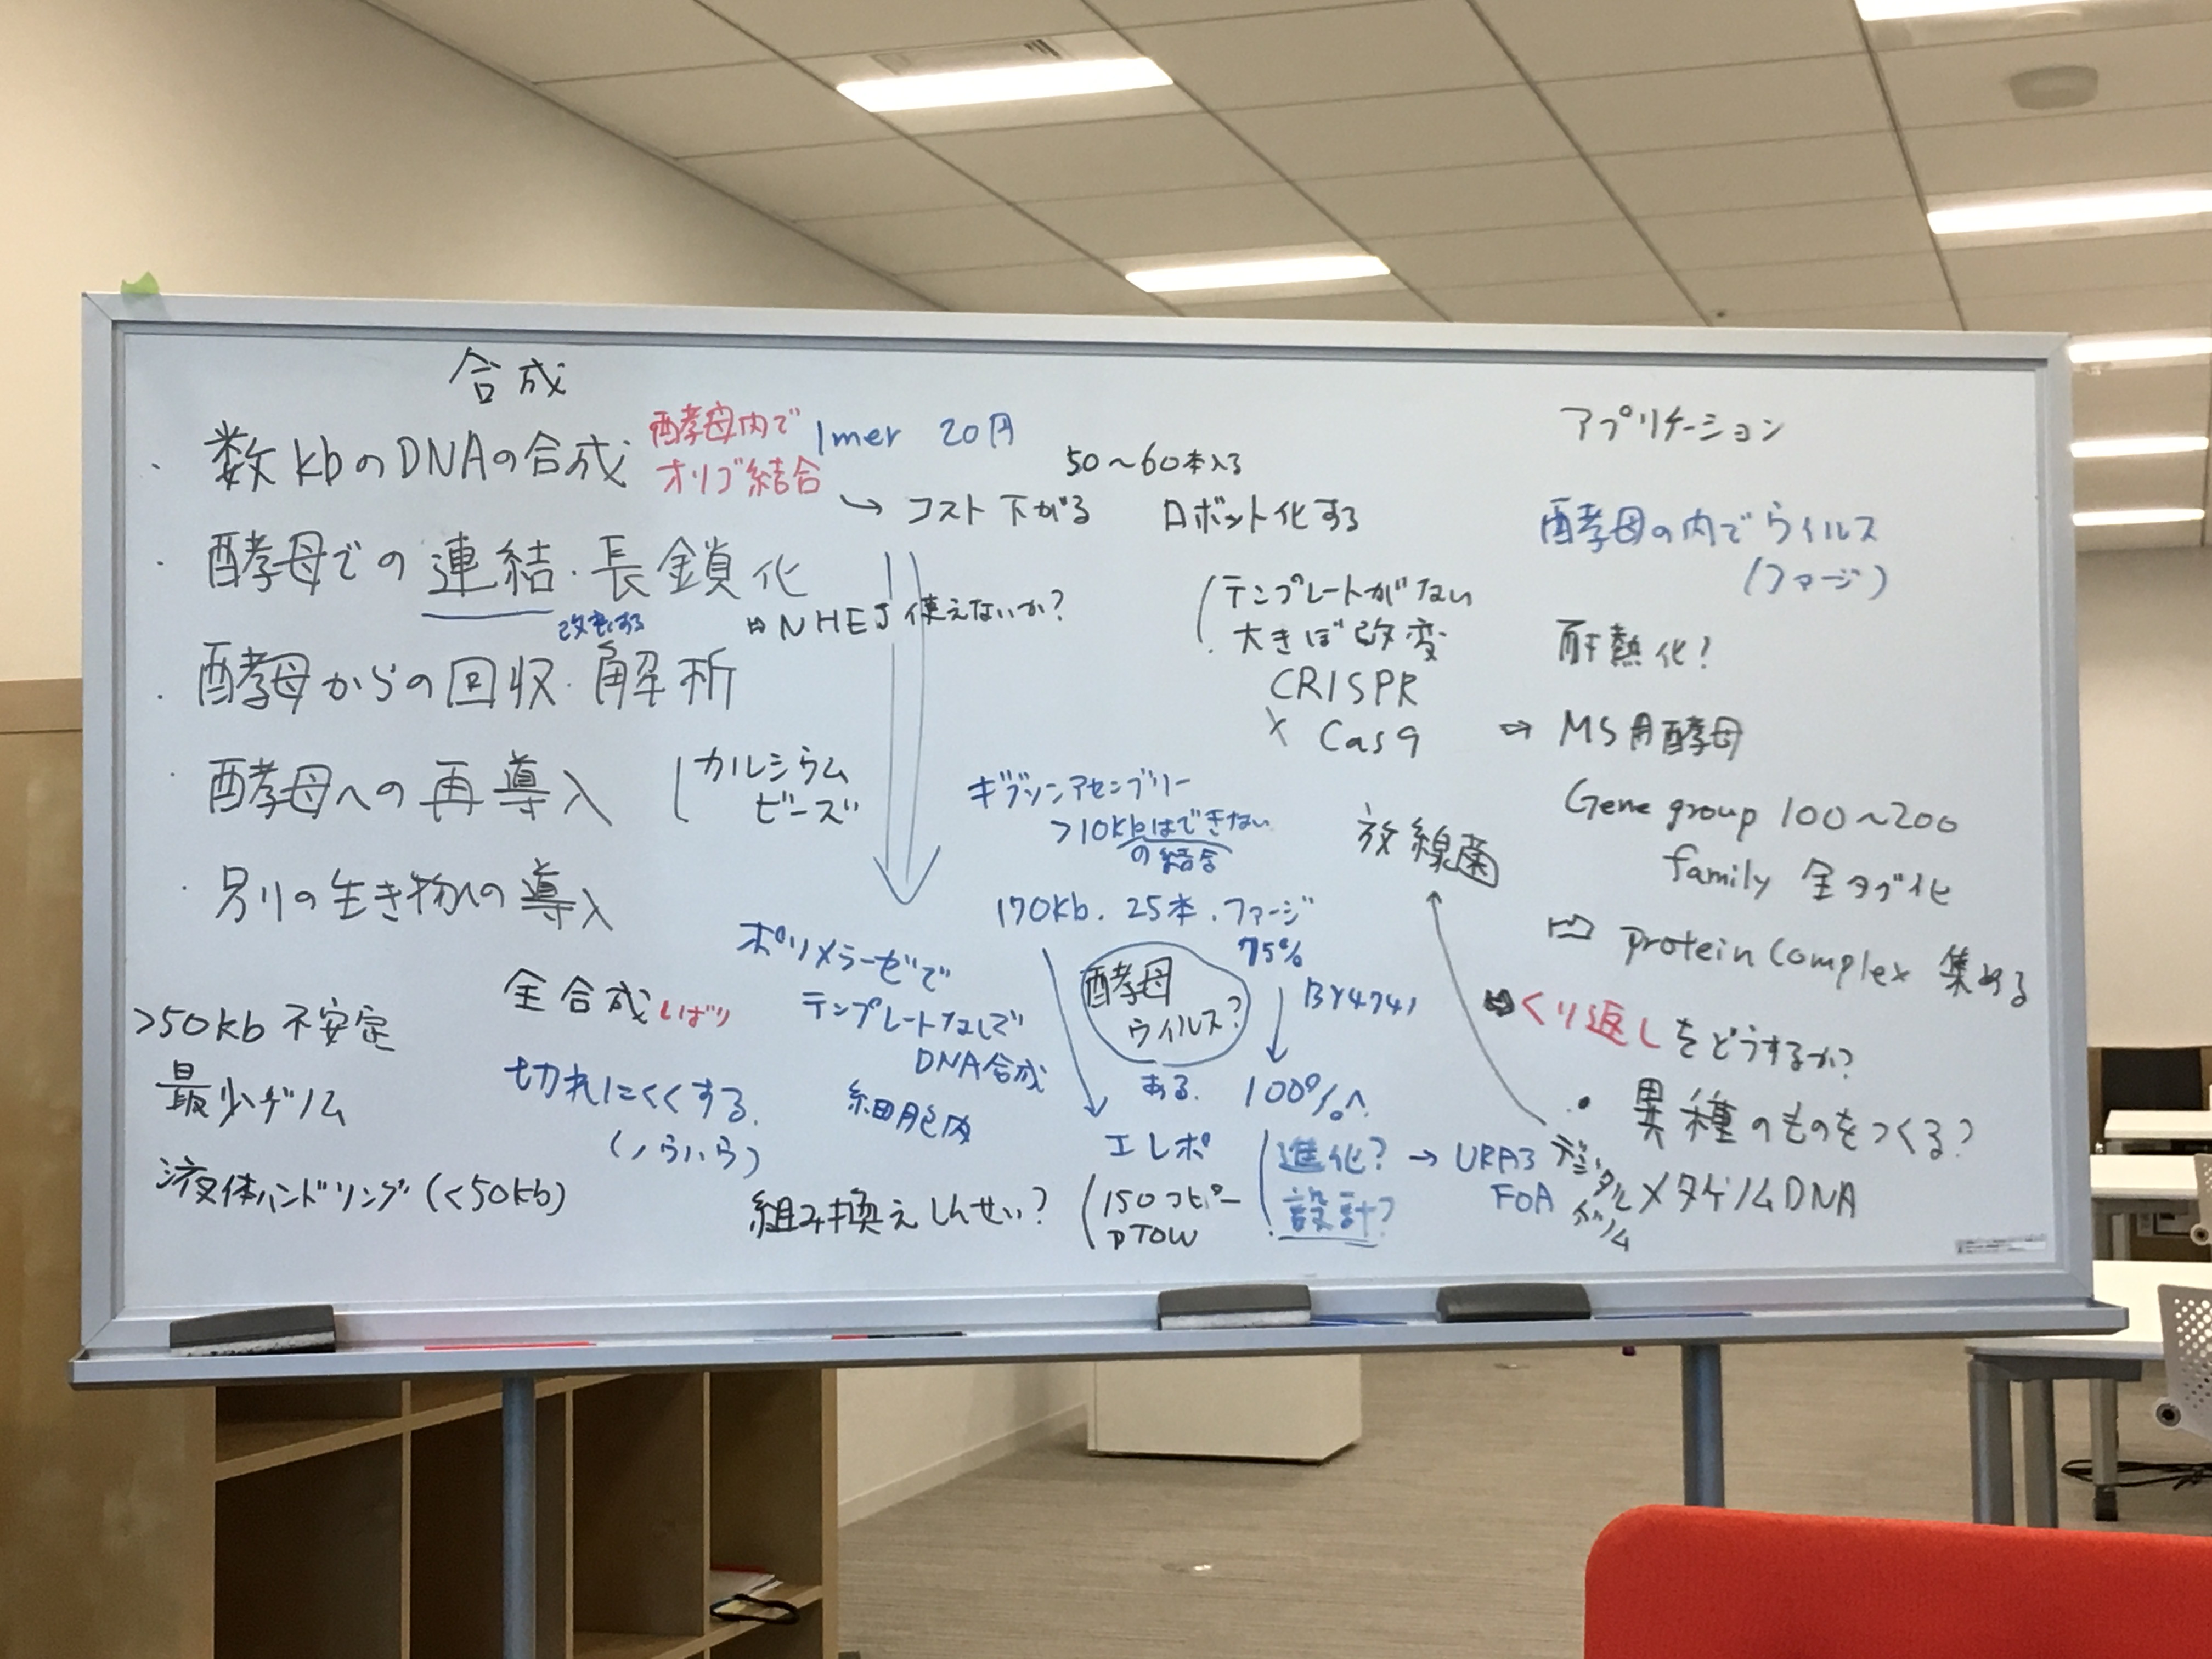 合成
・数kbのDNAの合成
酵母内で
オリゴ結合
1mer 20円
→ コスト下がる
50〜60本入る
ロボット化する
・酵母での連結・長鎖化
改変する
⇨ NHEJ 使えないか?
・酵母からの回収・解析
・酵母への再導入
カルシウム
ビーズ
・別の生き物への導入
>50kb 不安定
最少ゲノム
液体ハンドリング(<50kb)
全合成しばり
切れにくくする.
ポリメラーゼで
テンプレートなしで
DNA合成
細胞内
組み換えしんせい?
テンプレートがない
大きぼ改変
CRISPR
× Cas9
ギブソンアセンブリー
>10kbはできない
の結合
170kb. 25本. ファージ
75%
酵母
ウイルス?
ある.
BY4741
100%へ
エレポ
150コピー
pTOW
進化? → URA3
設計? FOA
放線菌
アプリケーション
酵母の内でウイルス
(ファージ)
耐熱化?
⇨ MS用酵母
Gene group 100〜200
family 全タグ化
⇨ protein complex 集める
⇨ くり返しをどうするか?
・異種のものをつくる?
デジタル
ゲノム
メタゲノムDNA